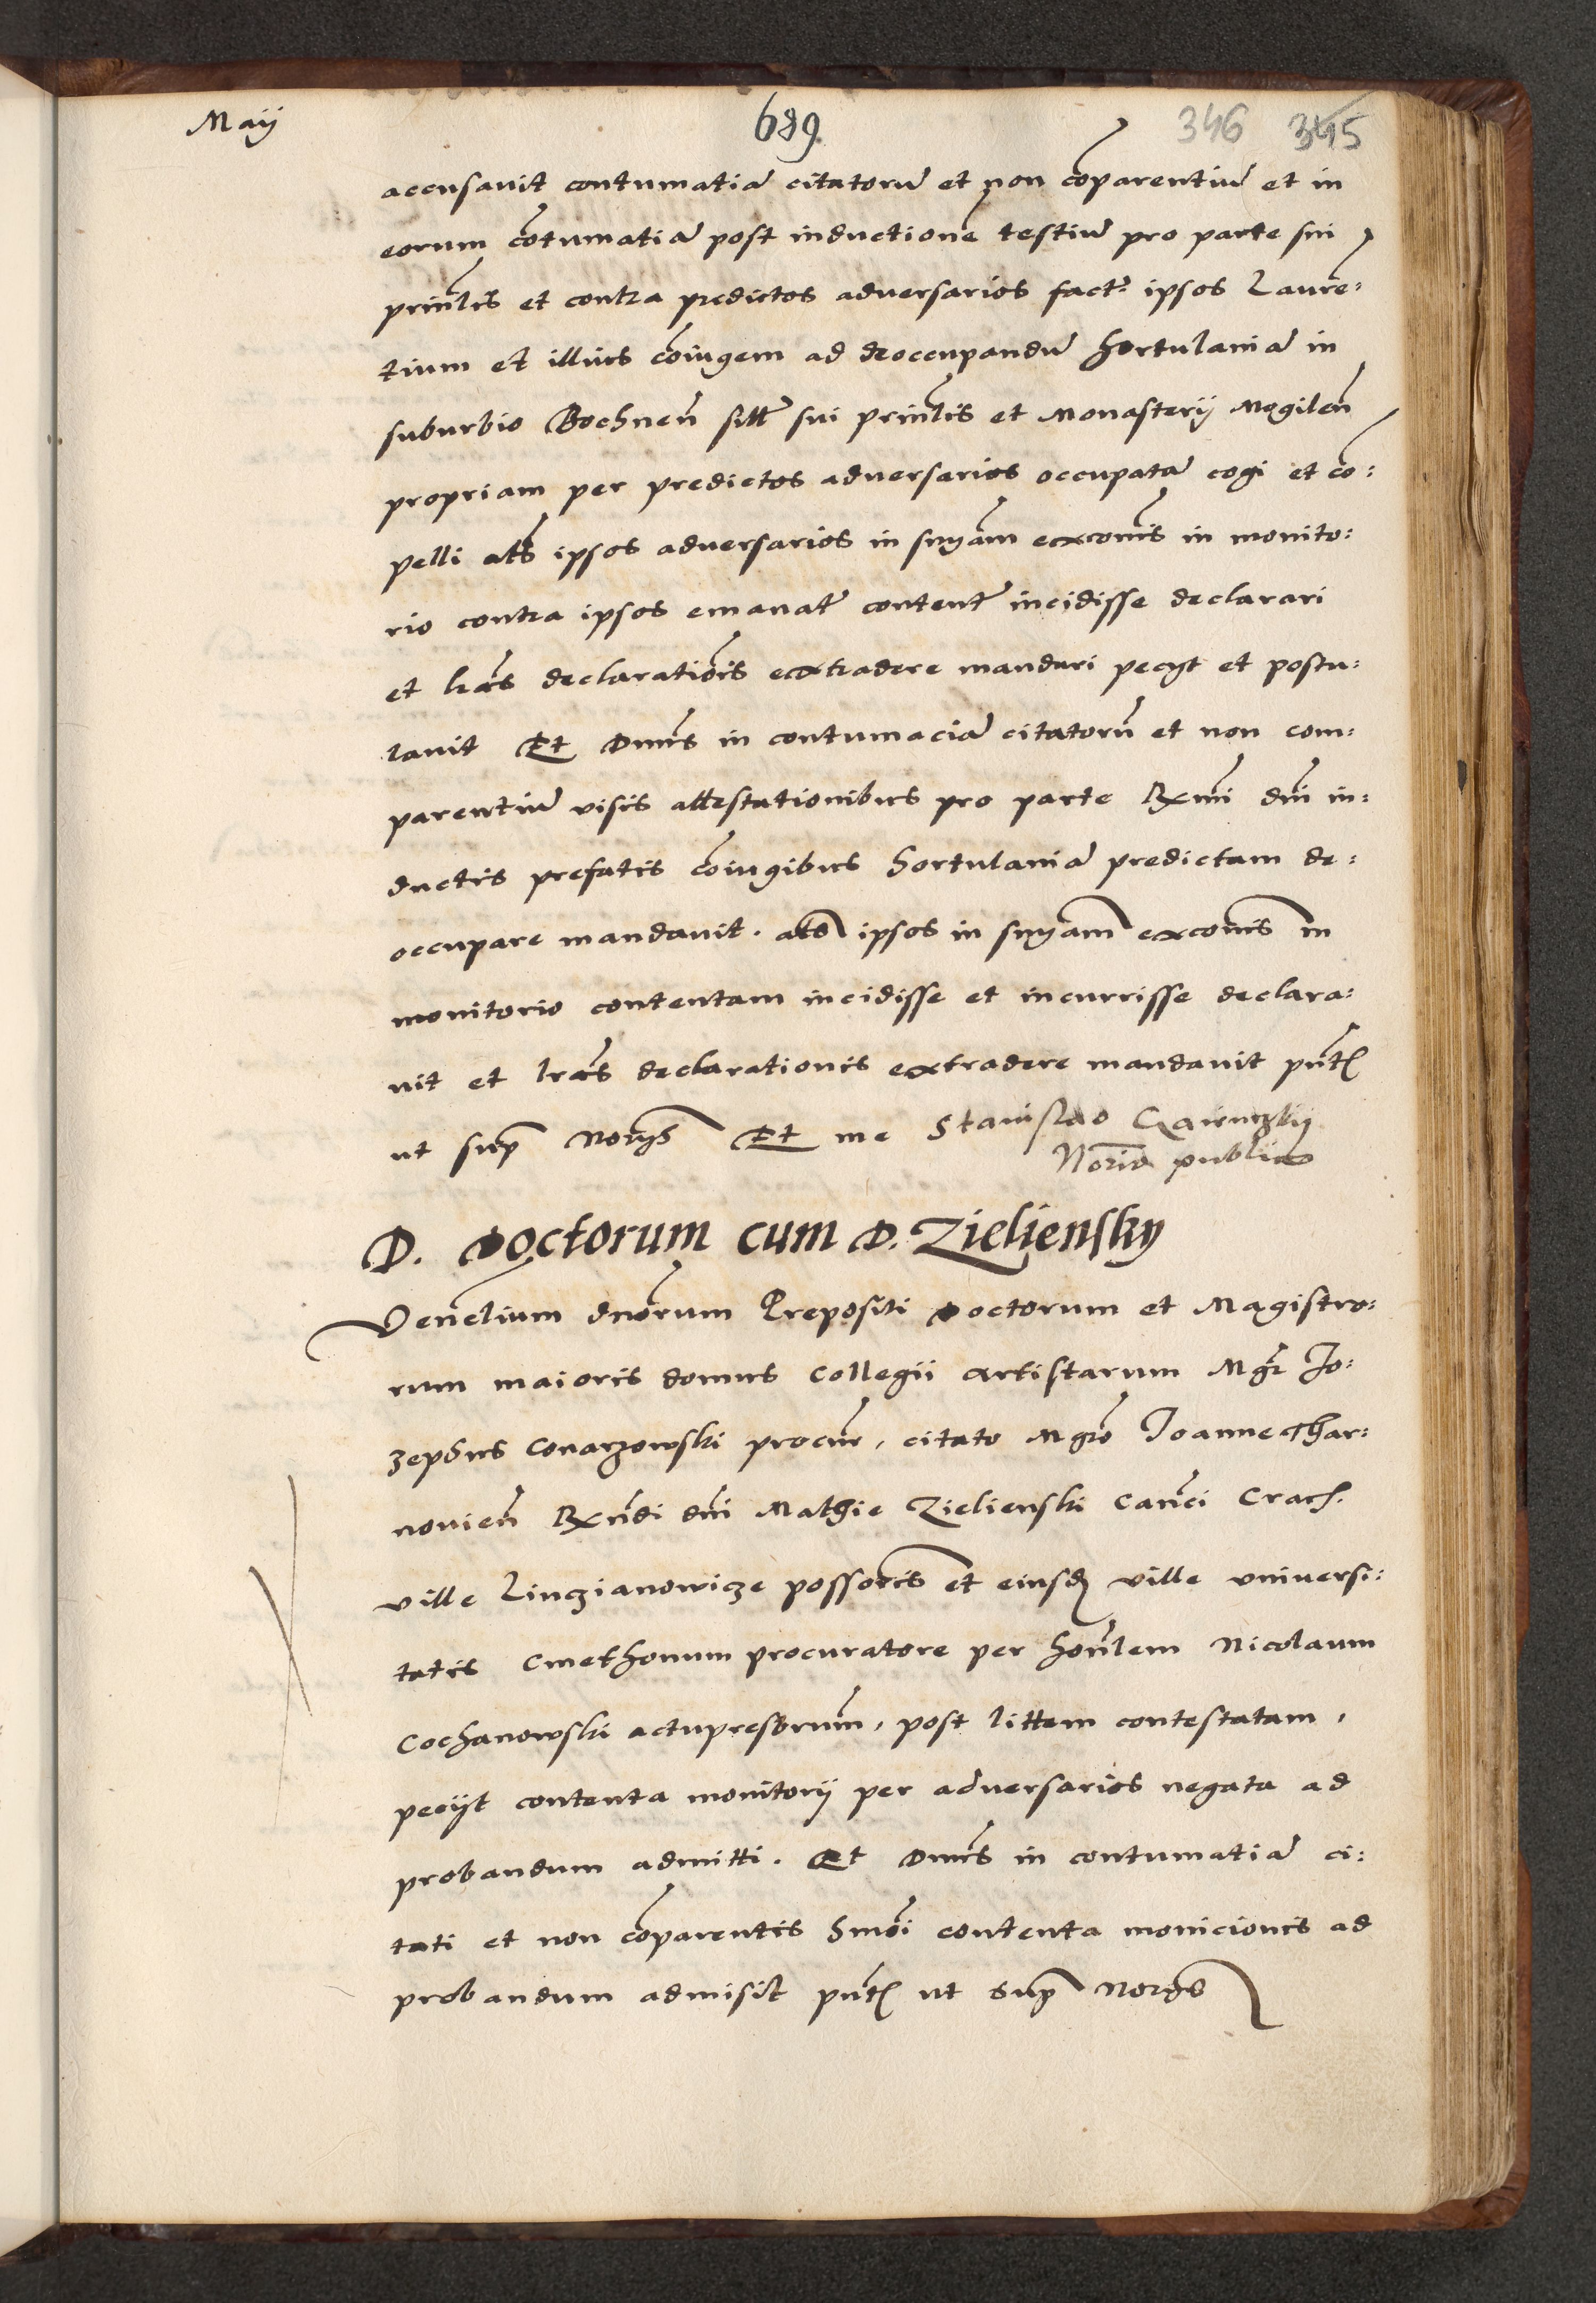 Maij
689
346 345
accusavit contumatiā citatorū et non cōparentiū et in
eorum cōtumatiā post inductionē testiū pro parte sui
prin̄lis et contra predictos adversarios fact̄ ipsos Laurē:
tium et illius cōiugem ad deoccupandū hortulaniā in
suburbio Bochnen̄ sitt̄ sui prin̄lis et Monasterij Mogilen̄
propriam per predictos adversarios occupatā cogi et cō:
pelli al̄s ipsos adversarios in sn̄yam exco̅nis in monito:
rio contra ipsos emanat̄ content̄ incidisse declarari
et l̄ras declaratiōis extradere mandari pecijt et postu:
lavit Et Dn̄us in contumaciā citatorū et non com:
parentiū visis attestationibus pro parte Rx̄mi dn̄i in:
ductis prefatis cōiugibus hortulaniā predictam de:
occupare mandavit. al̄s ipsos in sn̄yam exco̅nis in
monitorio contentam incidisse et incurrisse declara:
vit et l̄ras declarationis extradere mandavit pn̄t
ut sup̄ Norijs Et me Stanislao
Nōrio publico
D. Doctorum cum D. Zieliensky
Venēlium dnōrum Prepositi Doctorum et Magistro:
rum maioris domus Collegii Artistarum Mgr̄ Jo:
zephus Conarzowski procur̄, citato Mgrō Joanne Thar:
novien̄ Rx̄ndi dn̄i Mathie Zielienski Canci Crach.
ville Linczianowicze possōris et eiusd ville universi:
tatis Cmethonum procuratore per hon̄lem Nicolaum
Cochanowski actupresbrum̄, post littem contestatam,
pecijt contenta monitorij per adversarios negata ad
probandum admitti. Et Dn̄us in contumatiā ci:
tati et non cōparentis hmōi contenta monicionis ad
probandum admisit pn̄t ut sup̄ Norijs